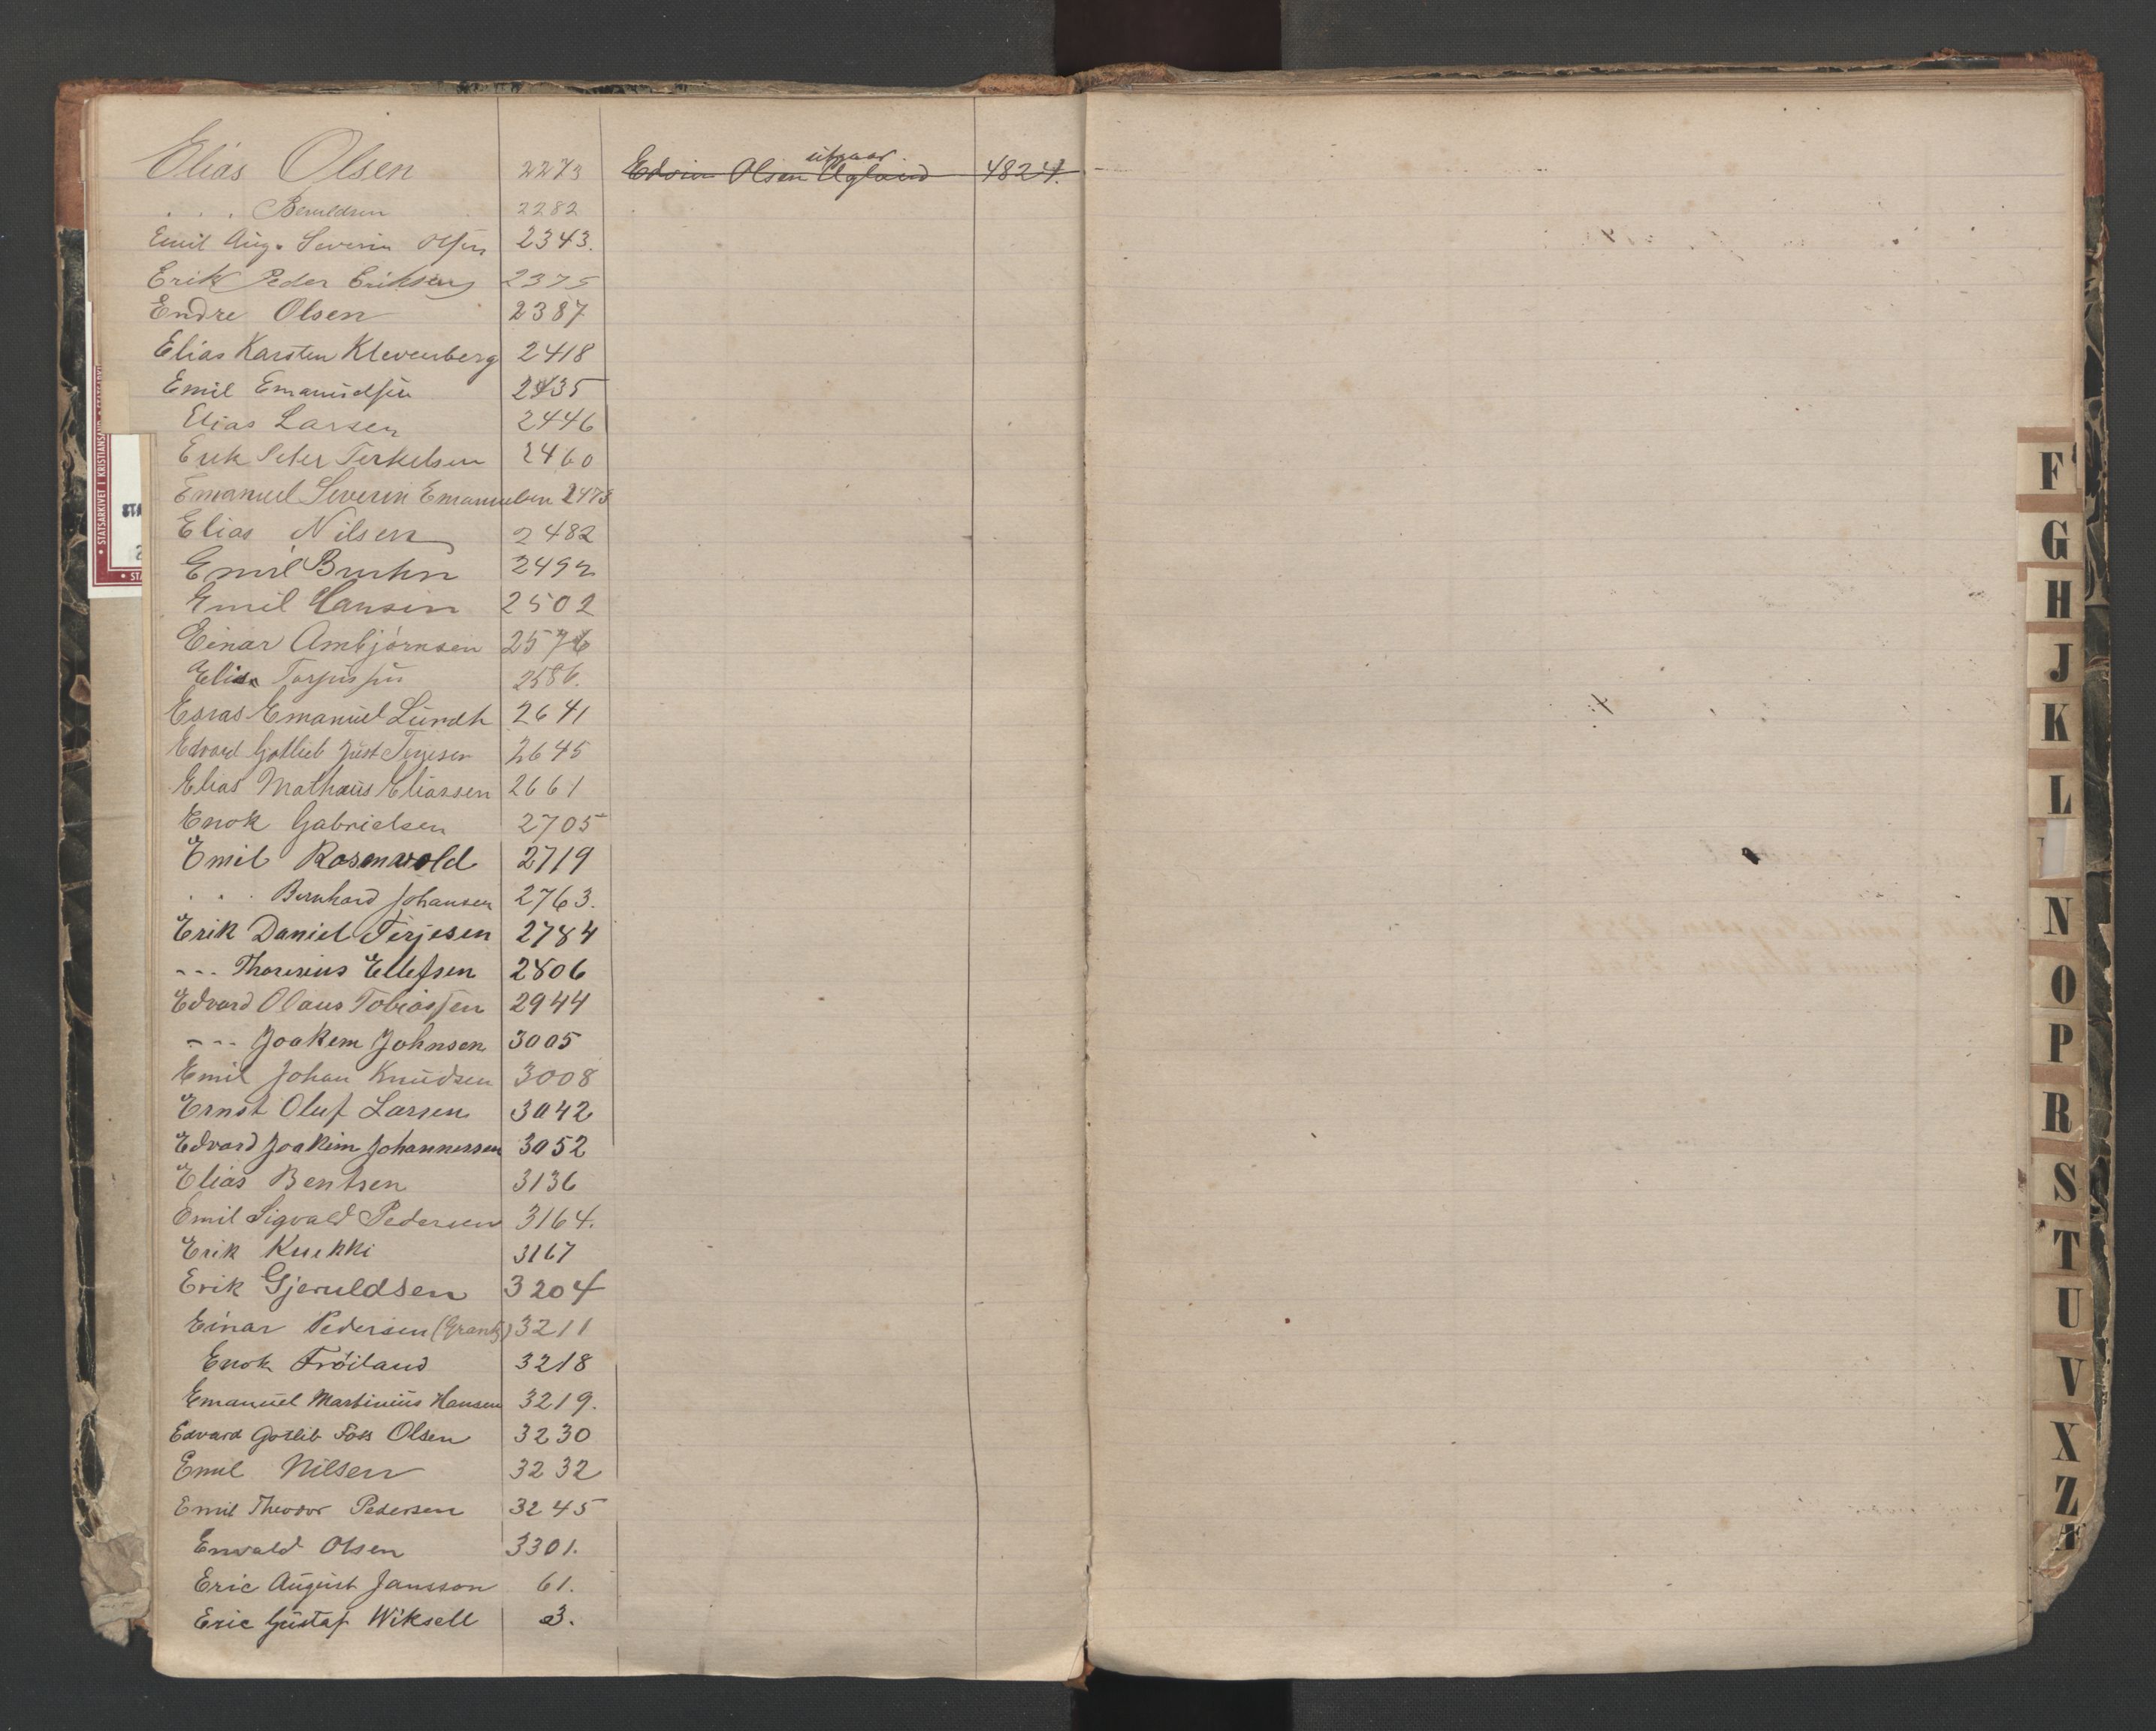 Elias Olsen 2273
. . . Beruldsen 2282
Emil Aug. Severin Olsen 2343.
Erik Peder Eriksen 2375
Endre Olsen 2387
Elias Karsten Klevenberg 2418
Emil Emanuelsen 2435
Elias Larsen 2446
Erik Peter Terkelsen 2460
Emanuel Severin Emanuelsen 2473
Elias Nilsen 2482
Emil Bruhn 2492
Emil Hansen 2502
Einar Ambjørnsen 2576
Elias 2586.
Esras Emanuel Lundh 2641
Edvard Gotlieb Just Terjesen 2645
Elias Mathæus Eliassen 2661
Enok Gabrielsen 2705
Emil Rosenvold 2719
. . . Bernhard Johansen 2763.
Erik Daniel Terjesen 2784
--- Thorenius Ellefsen 2806
Edvard Olaus Tobiassen 2944
--- Joakem Johnsen 3005
Emil Johan Knudsen 3008
Ernst Oluf Larsen 3042
Edvard Joakim Johannessen 3052
Elias Bentsen 3136
Emil Sigvald Pedersen 3164.
Erik 3167
Erik Gjeruldsen 3204
Einar Pedersen (Grantz) 3211
Enok Frøiland 3218
Emanuel Martinius Hansen 3219.
Edvard Gotlib Foss Olsen 3230
Emil Nilsen 3232
Emil Theodor Pedersen 3245
Envald Olsen 3301.
Eric August Jansson 61.
Eric Gustaf Wiksell 3.
utgaar
Edvin Olsen Ugland 4824.
F
G
H
J
K
L
N
O
P
R
S
T
U
V
X
Z
Æ
STATSARKIVET I KRISTIANSAND
STA